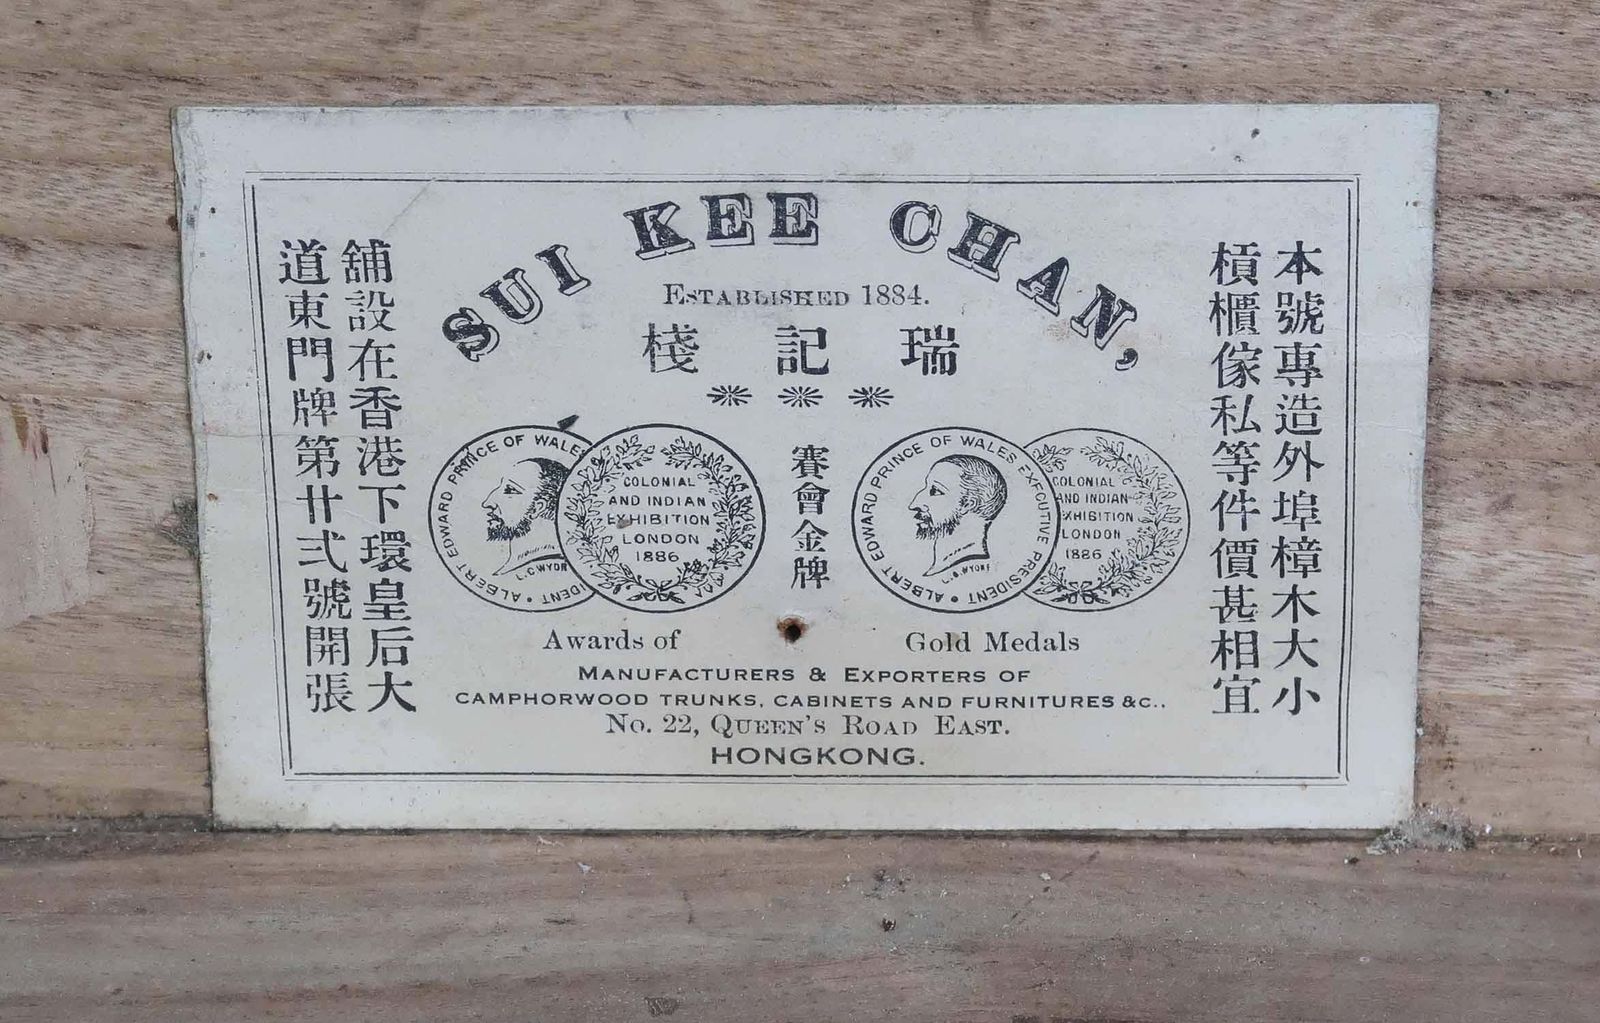 SUI KEE CHAN,
ESTABLISHED 1884.
瑞記棧
本號專造外埠樟木大小
槓櫃傢私等件價甚相宜
ALBERT EDWARD PRINCE OF WALES
DENT
L.C WYON
COLONIAL
AND INDIAN
EXHIBITION
LONDON
1886
賽會金牌
ALBERT EDWARD PRINCE OF WALES EXECUTIVE PRESIDENT
L.C. WYON F
COLONIAL
AND INDIAN
EXHIBITION
LONDON
1886
舖設在香港下環皇后大
道東門牌第廿弍號開張
Awards of Gold Medals
MANUFACTURERS & EXPORTERS OF
CAMPHORWOOD TRUNKS, CABINETS AND FURNITURES &C..
No. 22, QUEEN'S ROAD EAST.
HONGKONG.